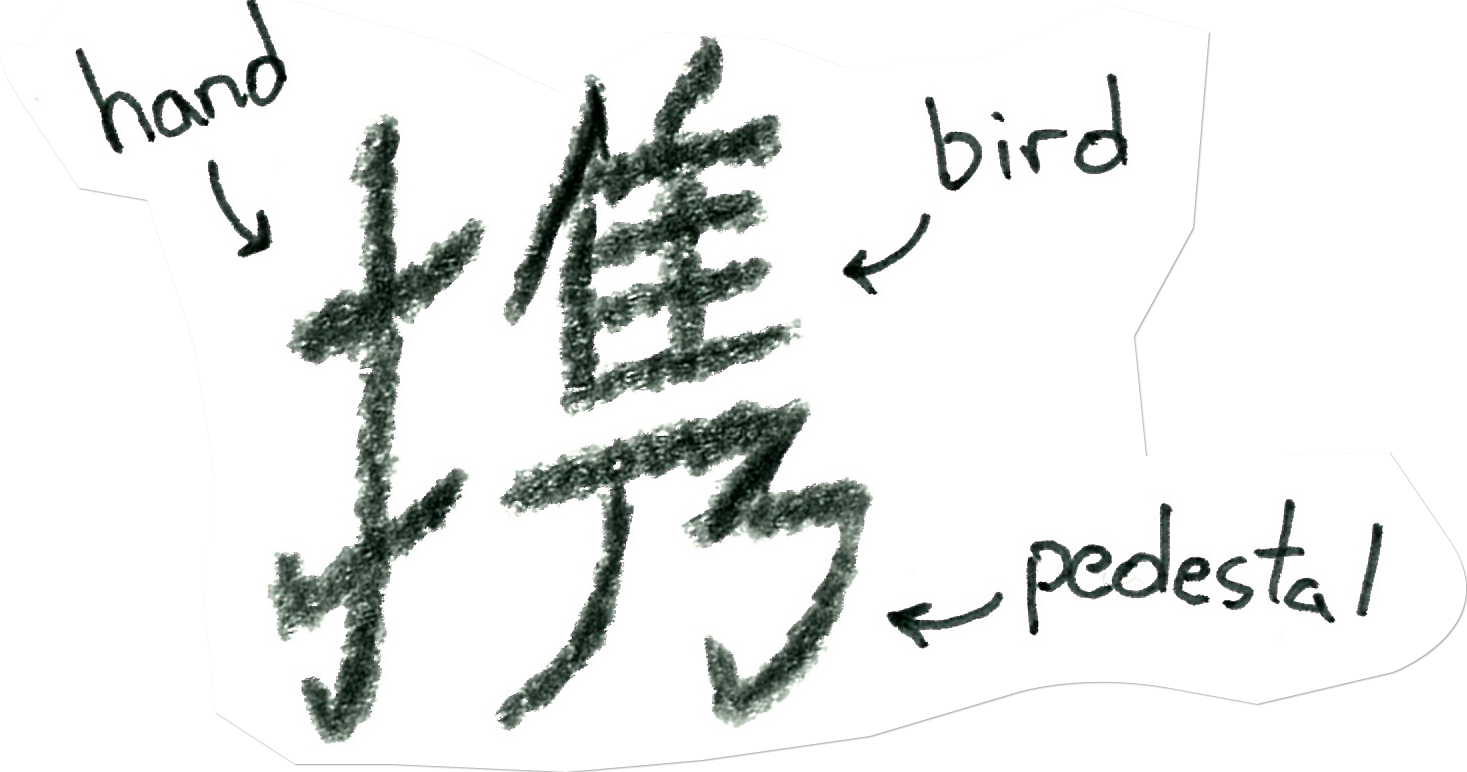 hand
携
bird
pedestal